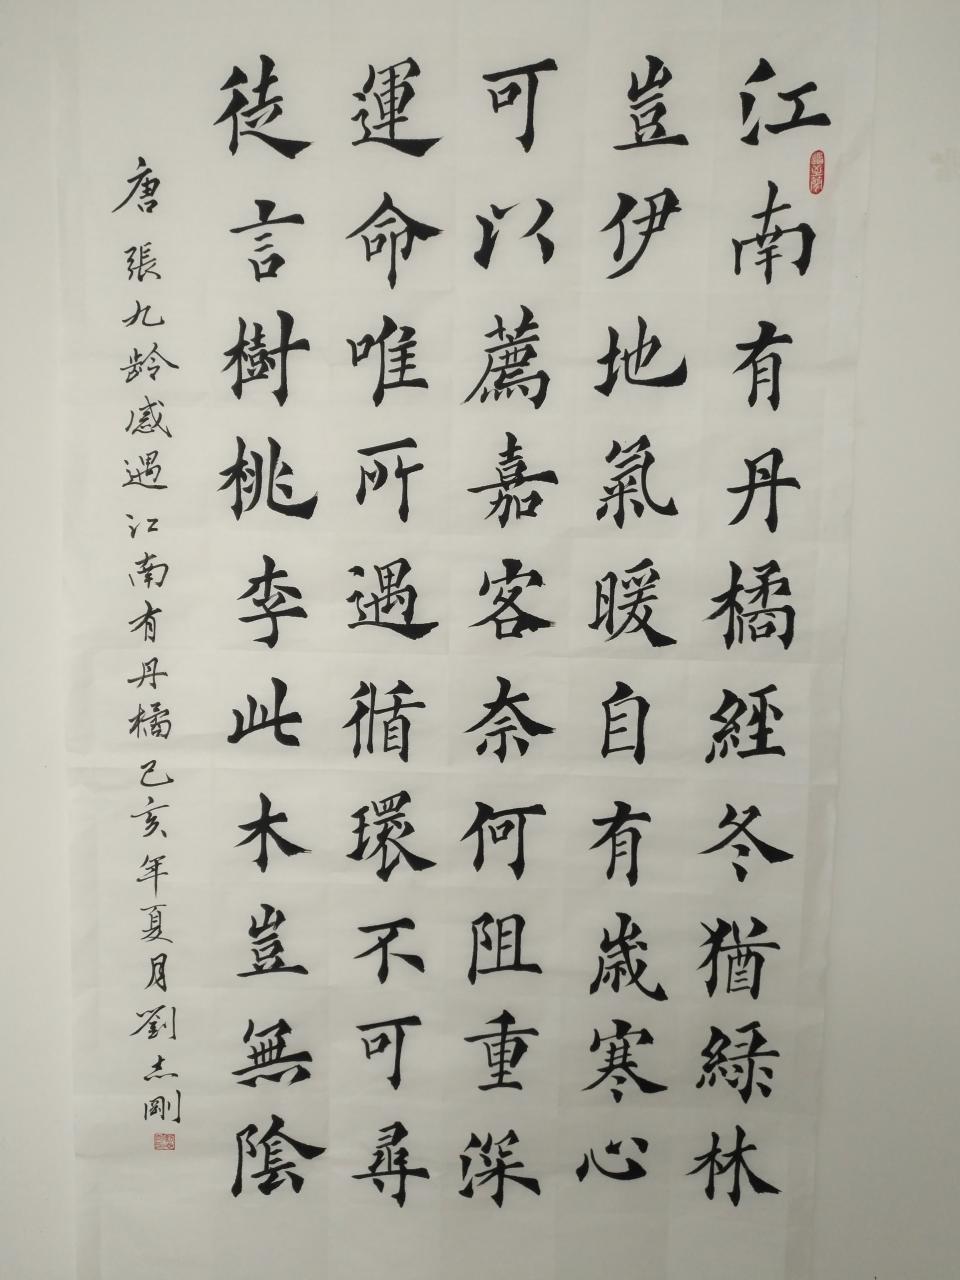 江南有丹橘經冬猶綠林
豈伊地氣暖自有歳寒心
可以薦嘉客奈何阻重深
運命唯所遇循環不可尋
徒言樹桃李此木豈無陰
唐張九龄感遇江南有丹橘己亥年夏月劉志剛